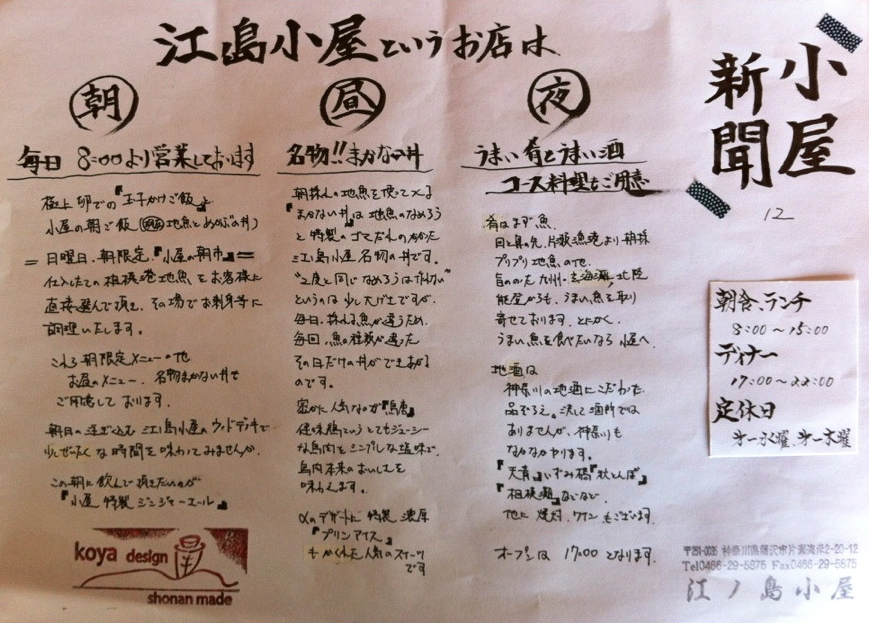 江島小屋というお店は
朝
毎日 8:00より営業しております
極上卵での『玉子かけご飯』と
小屋の朝ご飯(地魚とめかぶの丼)
= 日曜日、朝限定、『小屋の朝市』=
仕入したての相模港地魚をお客様に
直接選んで頂き、その場でお刺身等に
調理いたします。
これら朝限定メニューの他
お昼のメニュー、名物まかない丼も
ご用意しております。
朝日の注ぎ込む江島小屋のウッドデッキで
少しぜいたくな時間を味わってみませんか。
この朝に飲んで頂きたいのが
『小屋特製ジンジャーエール』
koya design
shonan made
昼
名物!!まかない丼
朝採れの地魚を使って作る
『まかない丼』は地魚のなめろう
と特製のゴマだれのかかった
江島小屋名物の丼です。
"2度と同じなめろうは作れない"
というのは少し大げさですが、
毎日、採れる魚が違うため、
毎回、魚の種類が違った
その日だけの丼ができあがる
のです。
密かに人気なのが『鳥唐』
味鶏というとてもジューシー
な鳥肉をシンプルな塩味で、
鳥肉本来のおいしさを
味わえます。
αのデザートに特製濃厚
『プリンアイス』
かくれた人気のスイーツ
です
夜
うまい肴とうまい酒
コース料理もご用意
肴はまず魚。
目と鼻の先、片瀬漁港より朝採
プリプリ地魚の他、
旨のった九州・玄海灘、北陸
能登からも、うまい魚を取り
寄せております。とにかく、
うまい魚を食べたいなら小屋へ。
地酒は
神奈川の地酒にこだわった
品ぞろえ。決して酒所では
ありませんが、神奈川も
なかなかやります。
『天青』『いずみ橋』『秋とんぼ』
『相模灘』などなど。
他に焼酎、ワインもございます。
オープンは 17:00 となります。
小屋
新聞
12
朝食、ランチ
8:00〜15:00
ディナー
17:00〜22:00
定休日
第一水曜、第一木曜
〒251-0035 神奈川県藤沢市片瀬海岸2-20-12
Tel0466-29-5875 Fax0466-29-5875
江ノ島小屋